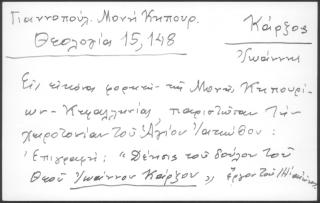 Γιαννοπούλ. Μονή Κηπουρ.
Θεολογία 15, 148
Κάρξος
Ἰωάννης
Εἰς εἰκόνα φορητὴν τῆς Μονῆς Κηπουρί-
ων - Κεφαλληνίας, παριστῶσαν τὴν
χειροτονίαν τοῦ Ἁγίου Ἰακώβου:
Ἐπιγραφή: "Δέησις τοῦ δούλου τοῦ
Θεοῦ Ἰωάννου Κάρξου", ἔργον τοῦ